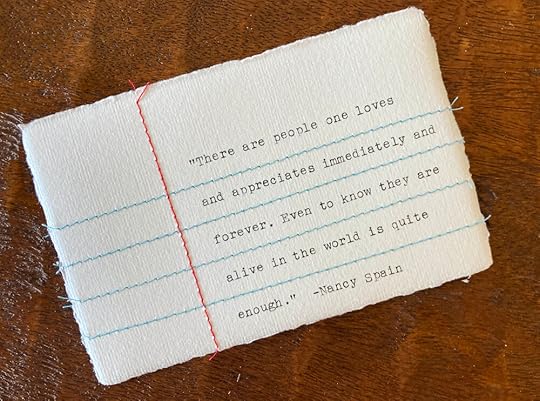 "There are people one loves
and appreciates immediately and
forever. Even to know they are
alive in the world is quite
enough." -Nancy Spain